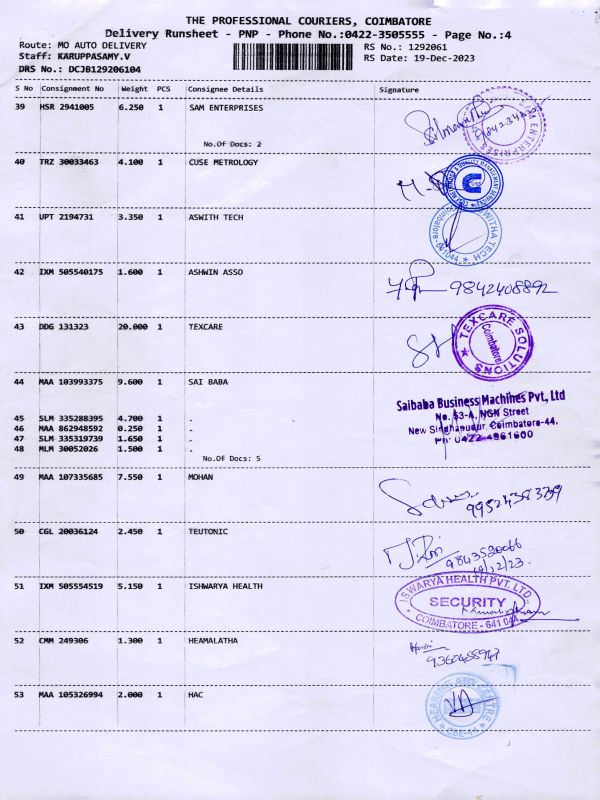 THE PROFESSIONAL COURIERS, COIMBATORE
Delivery Runsheet - PNP - Phone No.:0422-3505555 - Page No.:4
Route: MO AUTO DELIVERY RS No.: 1292061
Staff: KARUPPASAMY.V RS Date: 19-Dec-2023
DRS No.: DCJB129206104
S No Consignment No Weight PCS Consignee Details Signature
39 HSR 2941005 6.250 1 SAM ENTERPRISES
SAM ENTERPRISES
No.Of Docs: 2
40 TRZ 30033463 4.100 1 CUSE METROLOGY
41 UPT 2194731 3.350 1 ASWITH TECH
ASWITHA TECH
Coimbatore-641044
42 IXM 505540175 1.600 1 ASHWIN ASSO
9842408892
43 DDG 131323 20.000 1 TEXCARE
TEXCARE SOLUTIONS
Coimbatore
44 MAA 103993375 9.600 1 SAI BABA
Saibaba Business Machines Pvt, Ltd
No. 53-A, NGN Street
New Siddhapudur, Coimbatore-44.
Ph: 0422-4961600
45 SLM 335288395 4.700 1 .
46 MAA 862948592 0.250 1 .
47 SLM 335319739 1.650 1 .
48 MLM 30052026 1.500 1 .
No.Of Docs: 5
49 MAA 107335685 7.550 1 MOHAN
50 CGL 20036124 2.450 1 TEUTONIC
9843530066
19/12/23.
51 IXM 505554519 5.150 1 ISHWARYA HEALTH
ISWARYA HEALTH PVT. LTD.
SECURITY
COIMBATORE - 641 044
52 CMM 249306 1.300 1 HEAMALATHA
53 MAA 105326994 2.000 1 HAC
HEARING AID CENTRE
CBE-44